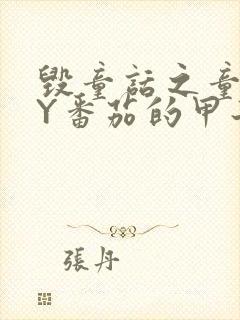 毁童话之童
Y番茄的甲
張丹